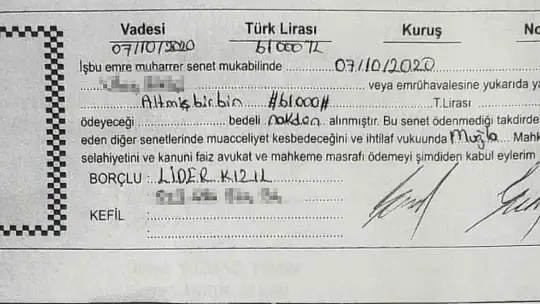 Vadesi Türk Lirası Kuruş No
07/10/2020 61000TL
İşbu emre muharrer senet mukabilinde 07/10/2020
veya emrühavalesine yukarıda ya
Altmış bir bin #61000# T.Lirası
ödeyeceği bedeli nakden alınmıştır. Bu senet ödenmediği takdirde
eden diğer senetlerinde muacceliyet kesbedeceğini ve ihtilaf vukuunda Muğla Mahk
selahiyetini ve kanuni faiz avukat ve mahkeme masrafı ödemeyi şimdiden kabul eylerim
BORÇLU : LİDER KIZIL
KEFİL :